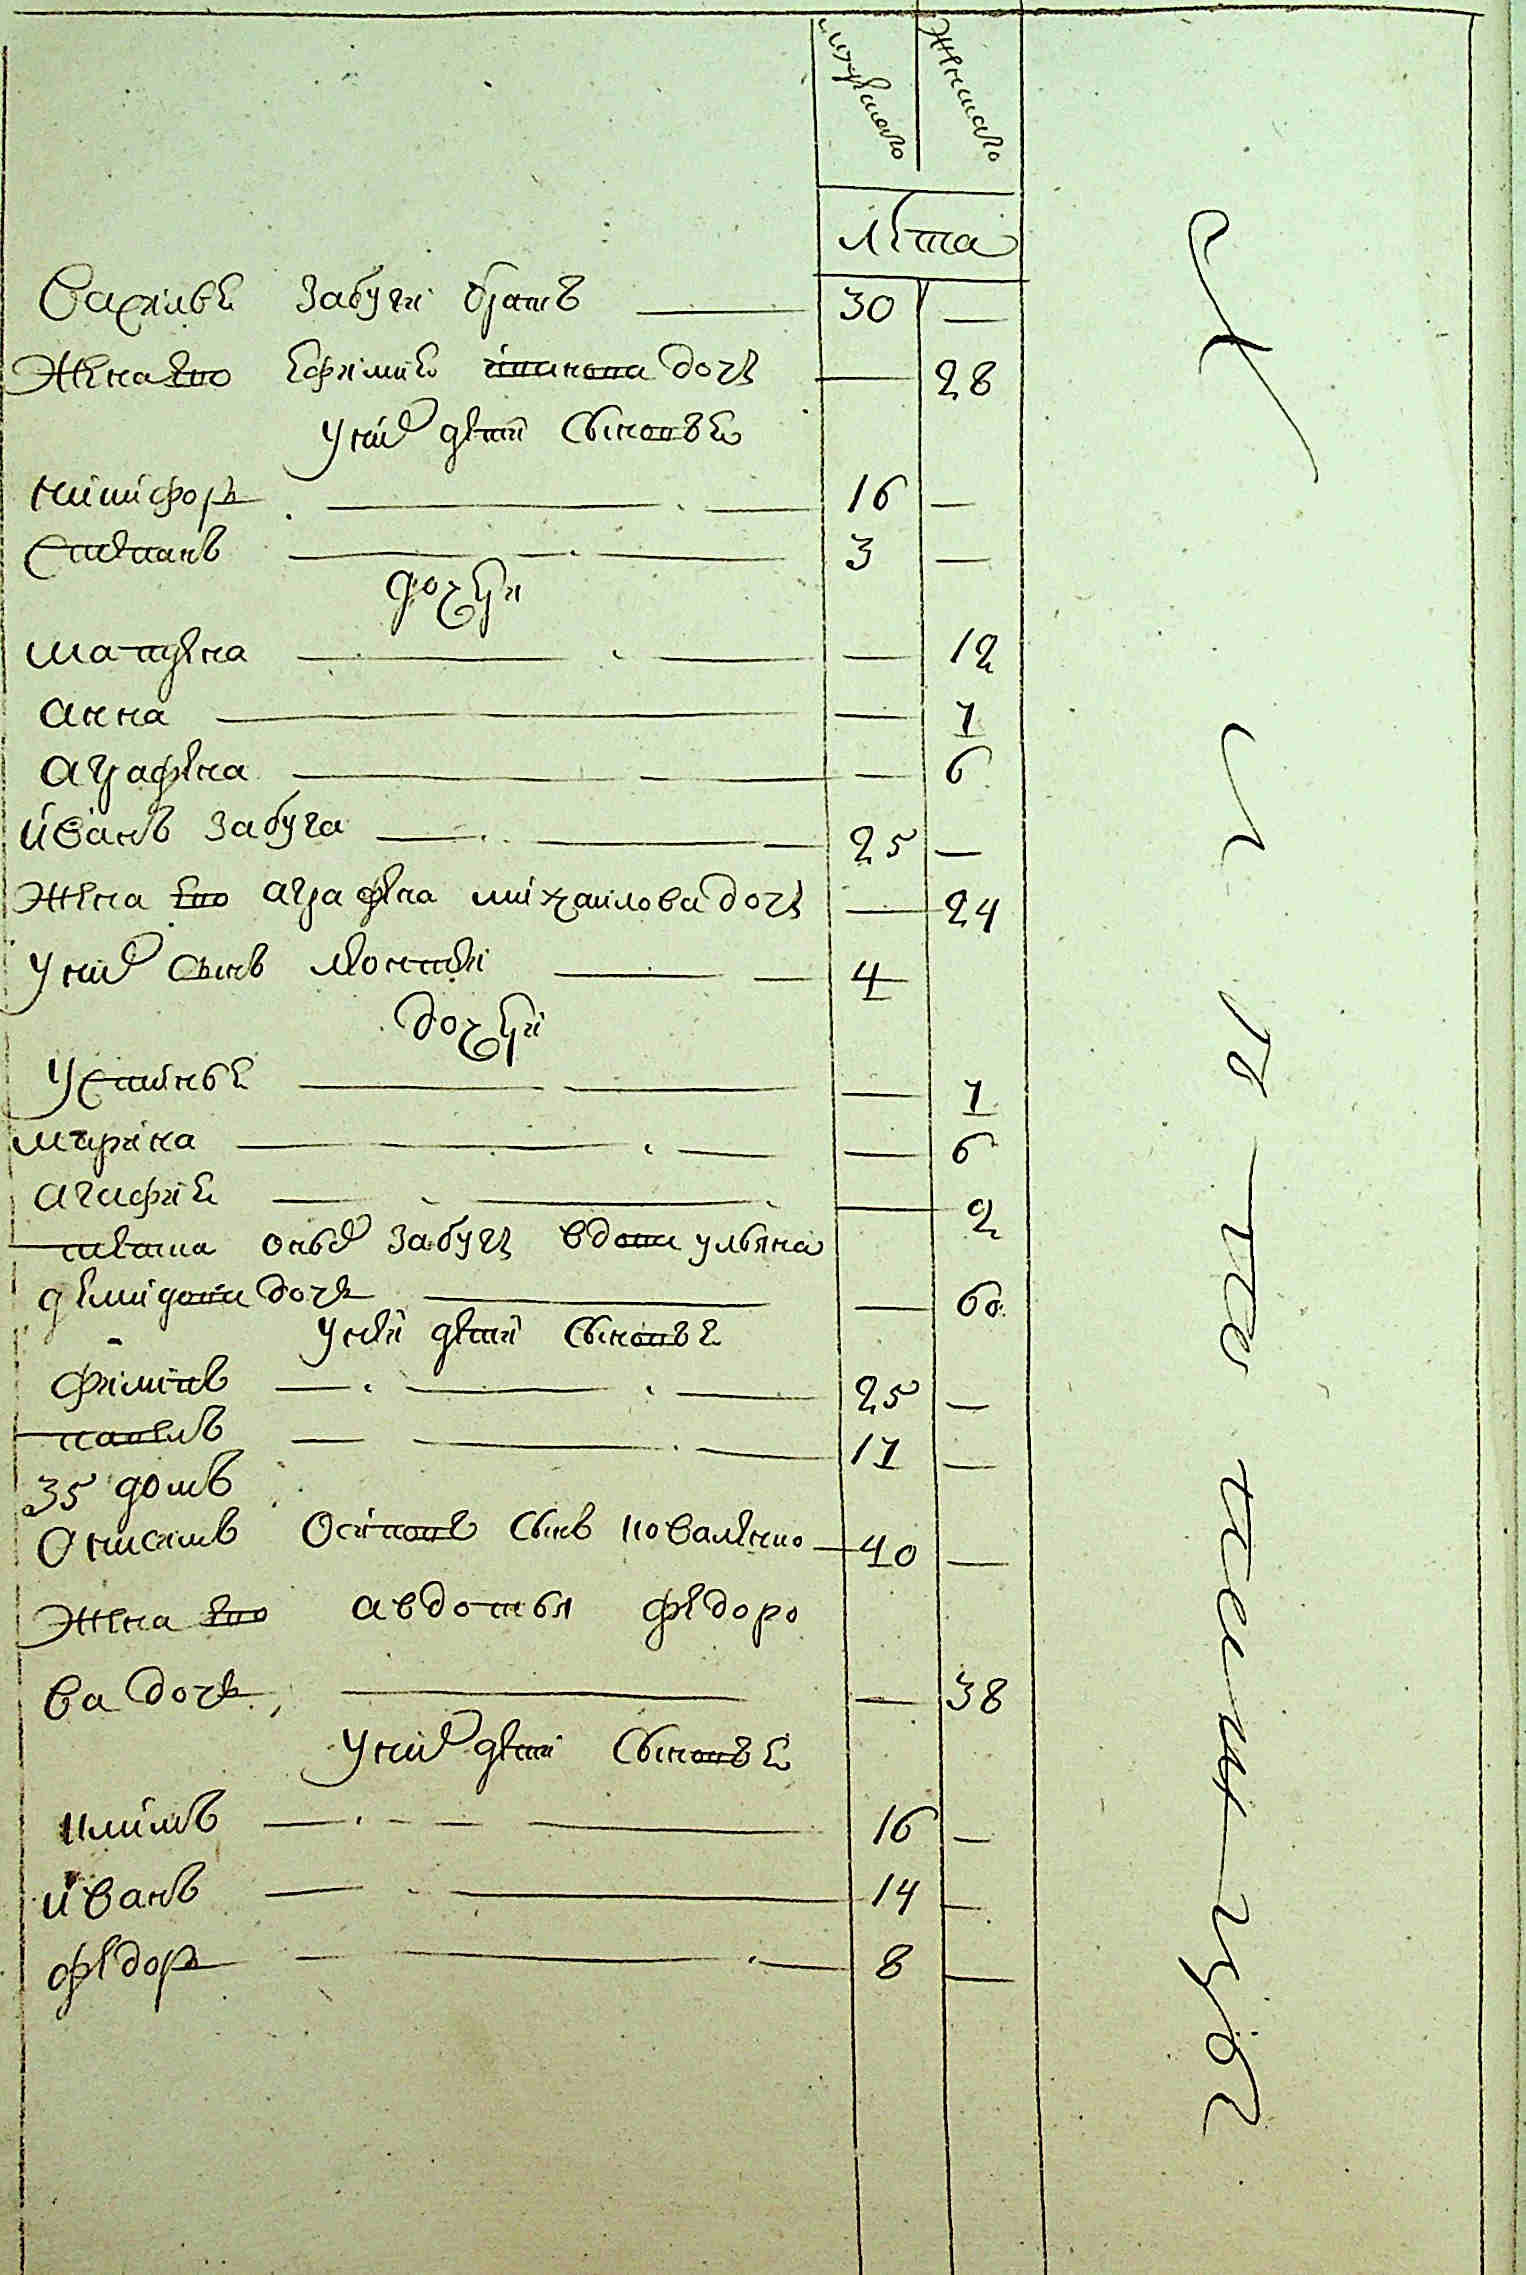 мужеско женско
лѣта
Василье Забуги братъ 30 —
Жена его Ефимие дочь — 28
у них дети сыновье
никифоръ 16 —
степанъ 3 —
дочери
матрена — 12
анна — 7
аграфена — 6
иванъ забуга 25 —
Жена его аграфена михаилова дочь — 24
у них сынъ леонтеи 4
дочери
устинье — 7
марина — 6
агафие — 2
тетка оных забугъ вдова ульяна
демидова дочь — 60
у неи дети сыновье
филипъ 25 —
павелъ 17 —
35 домъ
Онисимъ Осиповъ сынъ коваленко 40 —
Жена его авдотья федоро
ва дочь — 38
у них дети сыновье
климъ 16 —
иванъ 14 —
федоръ 8 —